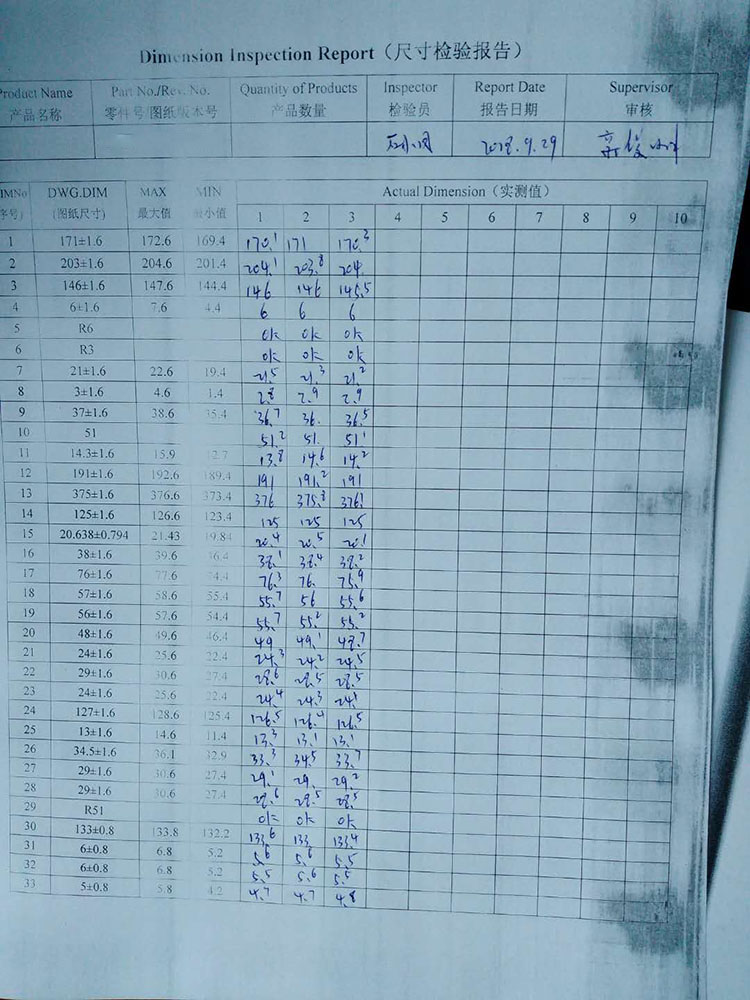 Dimension Inspection Report（尺寸检验报告）
Product Name Part No./Rev. No. Quantity of Products Inspector Report Date Supervisor
产品名称 零件号/图纸版本号 产品数量 检验员 报告日期 审核
2018.9.29
DIMNo DWG.DIM MAX MIN Actual Dimension（实测值）
序号) (图纸尺寸) 最大值 最小值 1 2 3 4 5 6 7 8 9 10
1 171±1.6 172.6 169.4 170.1 171 170.3
2 203±1.6 204.6 201.4 204.1 203.8 204
3 146±1.6 147.6 144.4 146 146 145.5
4 6±1.6 7.6 4.4 6 6 6
5 R6 ok ok ok
6 R3 ok ok ok
7 21±1.6 22.6 19.4 21.5 21.3 21.2
8 3±1.6 4.6 1.4 2.8 2.9 2.9
9 37±1.6 38.6 35.4 36.7 36. 36.5
10 51 51.2 51. 51.1
11 14.3±1.6 15.9 12.7 13.8 14.6 14.2
12 191±1.6 192.6 189.4 191 191.2 191
13 375±1.6 376.6 373.4 376 375.8 376.1
14 125±1.6 126.6 123.4 125 125 125
15 20.638±0.794 21.43 19.84 20.4 20.5 20.1
16 38±1.6 39.6 36.4 38.1 38.4 38.2
17 76±1.6 77.6 74.4 76.3 76. 75.9
18 57±1.6 58.6 55.4 55.7 56 55.6
19 56±1.6 57.6 54.4 55.7 55.2 55.2
20 48±1.6 49.6 46.4 49 49.1 48.7
21 24±1.6 25.6 22.4 24.3 24.2 24.5
22 29±1.6 30.6 27.4 28.6 28.5 28.5
23 24±1.6 25.6 22.4 24.4 24.3 24.1
24 127±1.6 128.6 125.4 126.5 126.4 126.5
25 13±1.6 14.6 11.4 13.3 13.1 13.1
26 34.5±1.6 36.1 32.9 33.3 34.5 33.7
27 29±1.6 30.6 27.4 29.1 29. 29.2
28 29±1.6 30.6 27.4 28.6 28.5 28.5
29 R51 ok ok ok
30 133±0.8 133.8 132.2 133.6 133. 133.4
31 6±0.8 6.8 5.2 5.6 5.6 5.5
32 6±0.8 6.8 5.2 5.5 5.6 5.5
33 5±0.8 5.8 4.2 4.7 4.7 4.8